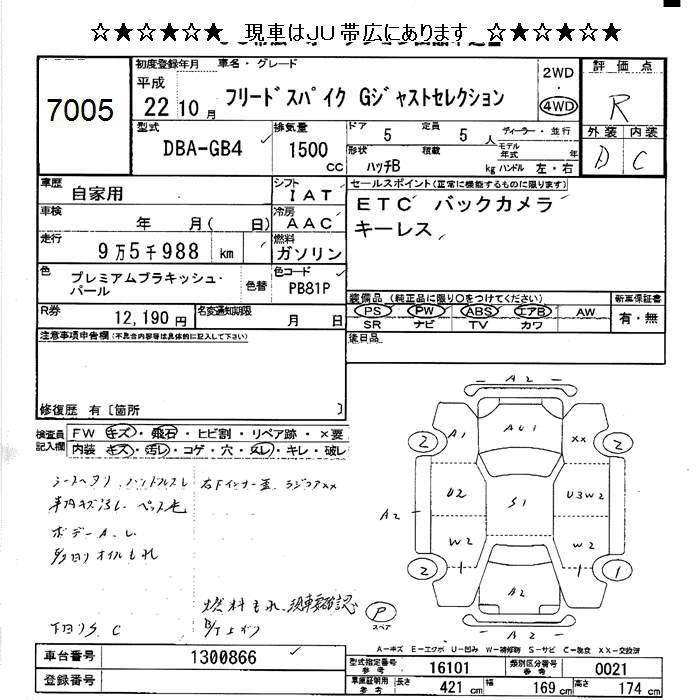 ☆★☆★☆★ 現車はJU帯広にあります ☆★☆★☆★
7005
初度登録年月 車名・グレード
平成
22 10月 フリードスパイク Gジャストセレクション
2WD
・
4WD
評価点
R
外装 内装
D C
型式 排気量 ドア 定員 ディーラー・並行
DBA-GB4 1500 cc 5 5 人
モデル年式 年
形状 積載 ハンドル 左・右
ハッチB kg
車歴 自家用
シフト IAT
セールスポイント(正常に機能するものに限ります)
ETC バックカメラ
キーレス
車検 年 月( 日)
冷房 AAC
走行 9万5千988 km
燃料 ガソリン
色 プレミアムブラキッシュ・パール 色替
色コード PB81P
装備品 (純正品に限り○をつけてください) 新車保証書
PS ・ PW ・ ABS ・ エアB ・ AW
SR ナビ TV カワ
有・無
R券 12,190円 名変通知期限 月 日
後日品
注意事項申告欄(不具合内容等は具体的に記入して下さい)
修復歴 有〔箇所 〕
検査員記入欄
FW キズ・飛石・ヒビ割・リペア跡・×要
内装 キズ・汚レ・コゲ・穴・スレ・キレ・破レ
シートヘタリ ハンドルスレ 右下インナー歪 ラジコアxx
車内キズ汚レ ペット毛
ボデーA.レ
オイルもれ
燃料もれ 現車要確認
下回りS C
A2
A1 AU1 xx
2 2
A2 U2 S1 U3W2
W2 W2
2 1 1 1
A2
P
スペア
A-キズ E-エクボ U-凹み W-補修跡 S-サビ C-腐食 XX-交換済
車台番号 1300866
登録番号
型式指定番号 参考 16101 類別区分番号 参考 0021
車庫証明用 参考 長さ 421cm 幅 169cm 高さ 174cm